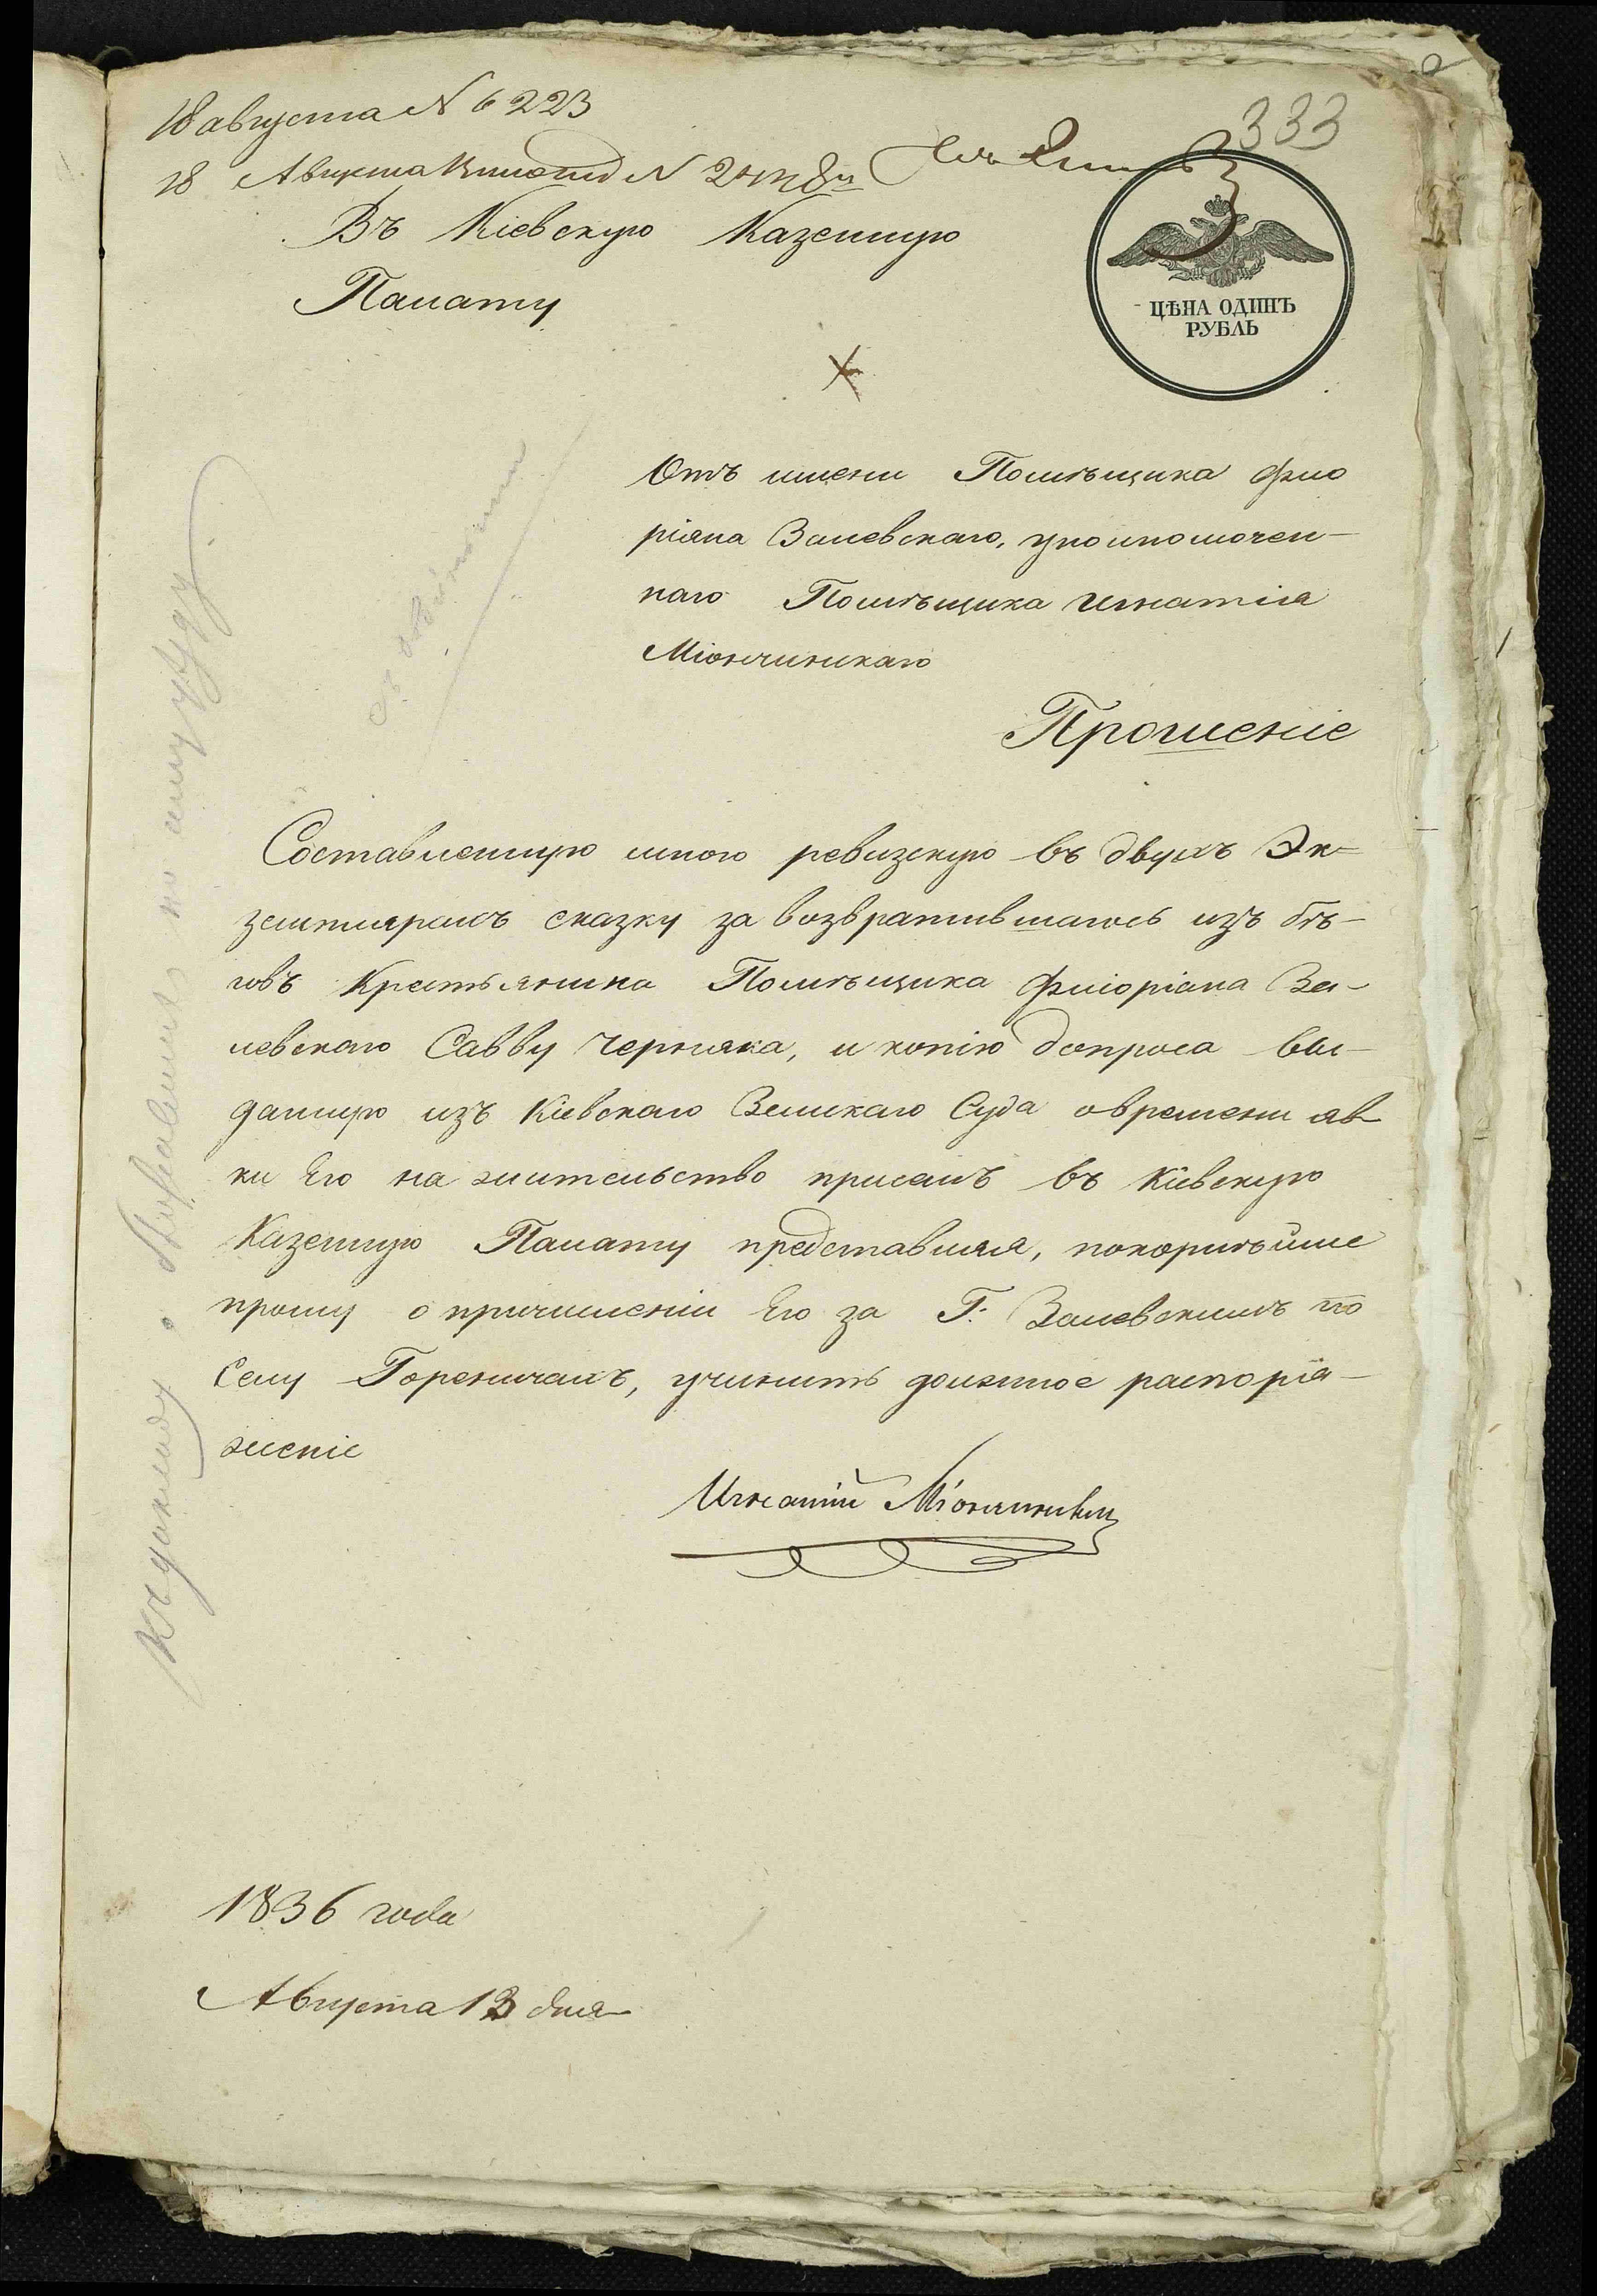 333
18 августа N 6223
18 Августа N
Въ Кіевскую Казенную
Палату
ЦѢНА ОДИНЪ
РУБЛЬ
Отъ имени Помѣщика Фло
ріяна Залевскаго, уполномочен-
наго Помѣщика Игнатія
Міончинскаго
Прошеніе
Составленную мною ревизскую въ двухъ Эк-
земплярахъ сказку за возвратившагось изъ бѣ-
говъ Крестьянина Помѣщика Флоріана За-
левскаго Савву Черняка, и копію допроса вы-
данную изъ Кіевскаго Земскаго Суда овремени яв
ки Его на жительство присемъ въ Кіевскую
Казенную Палату представляя, покорнѣйше
прошу о причисленіи Его за Г: Залевскимъ по
Селу Гореничахъ, учинить должное распоря-
женіе
Игнатій
1836 года
Августа 13 дня